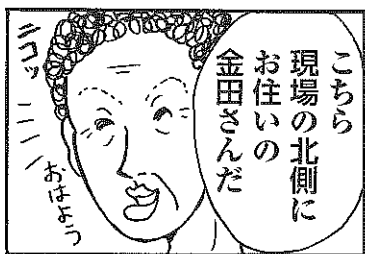 こちら
現場の北側に
お住いの
金田さんだ
ニコッ
おはよう